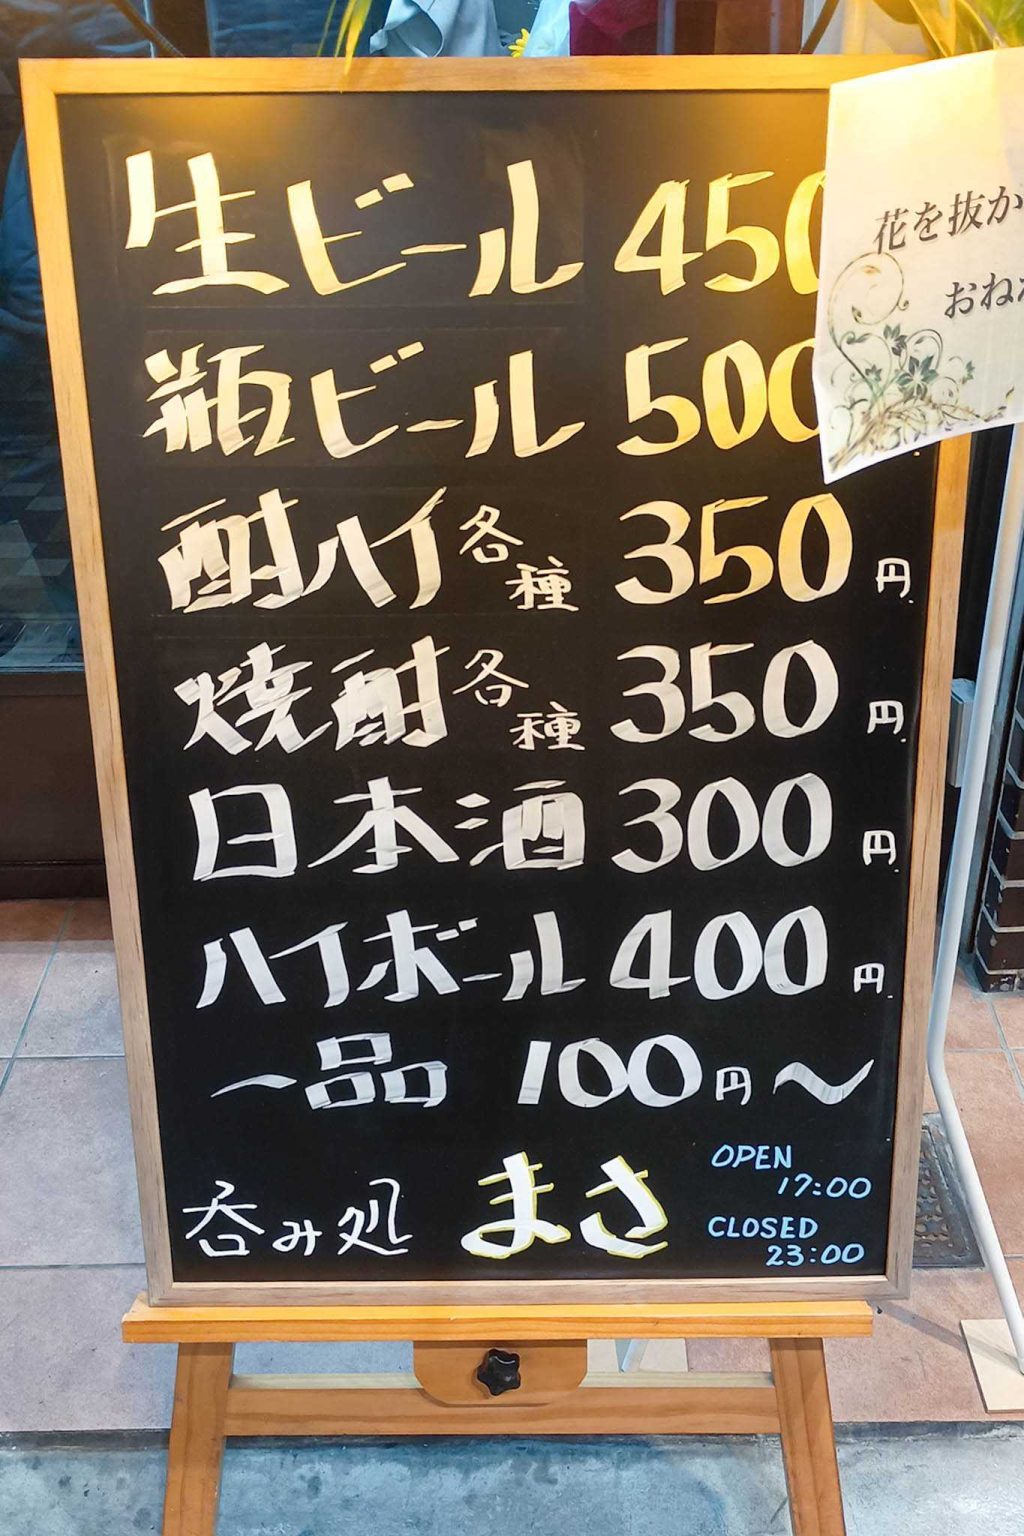 生ビール 450
瓶ビール 500
酎ハイ 各種 350円
焼酎 各種 350円
日本酒 300円
ハイボール 400円
一品 100円〜
呑み処 まさ
OPEN
17:00
CLOSED
23:00
花を抜か
おね